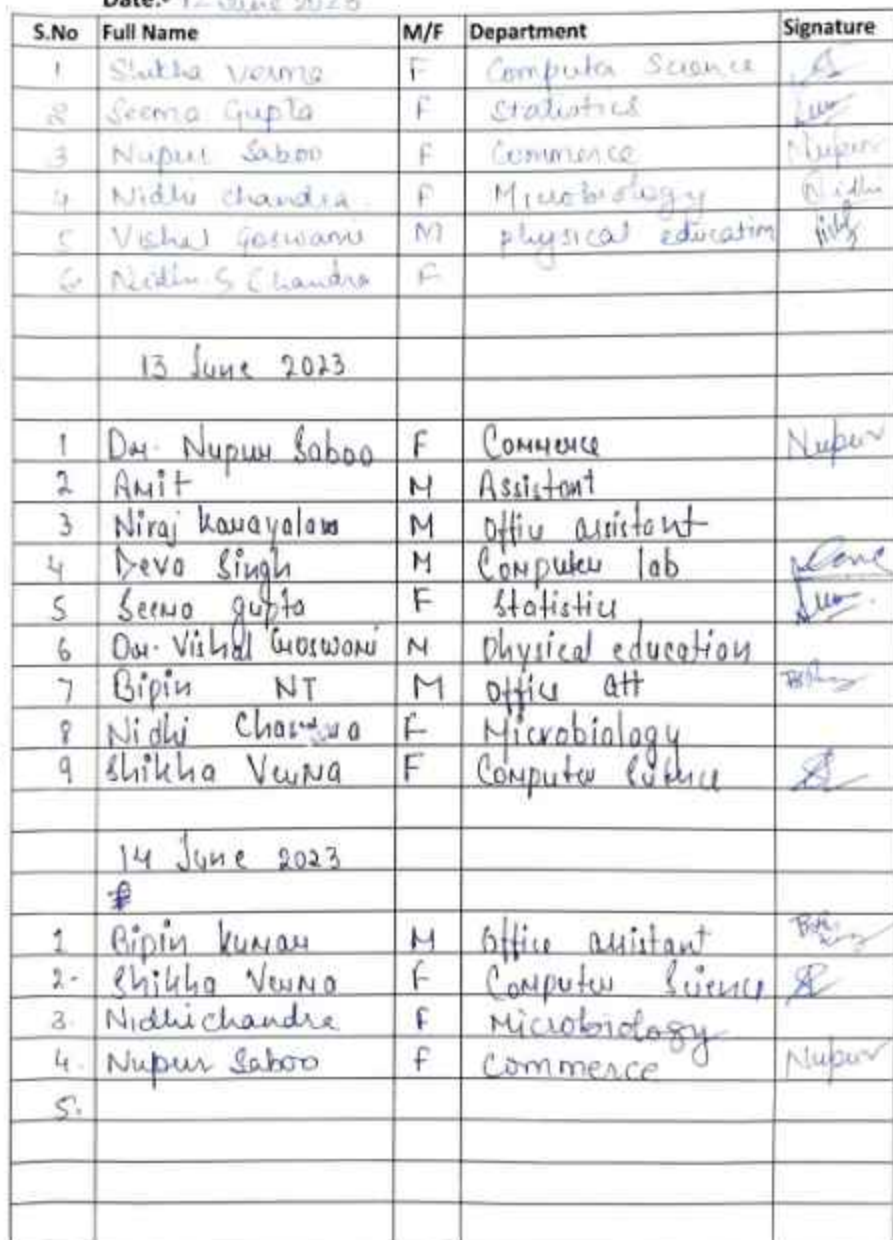 Date:- 12 June 2023
S.No Full Name M/F Department Signature
1 Shikha Verma F Computer Science
2 Seema Gupta F Statistics
3 Nupur Saboo F Commerce Nupur
4 Nidhi Chandra F Microbiology Nidhi
5 Vishal Goswami M physical education
6 Nidhi S Chandra F
13 June 2023
1 Dr. Nupur Saboo F Commerce Nupur
2 Amit M Assistant
3 Niraj M Office assistant
4 Deva Singh M Computer lab
5 Seema gupta F Statistics
6 Dr. Vishal Goswami M Physical education
7 Bipin NT M Office att
8 Nidhi F Microbiology
9 Shikha Verma F Computer Science
14 June 2023
1 Bipin kumar M Office assistant
2. Shikha Verma F Computer Science
3. Nidhi chandra F Microbiology
4. Nupur Saboo F Commerce Nupur
5.